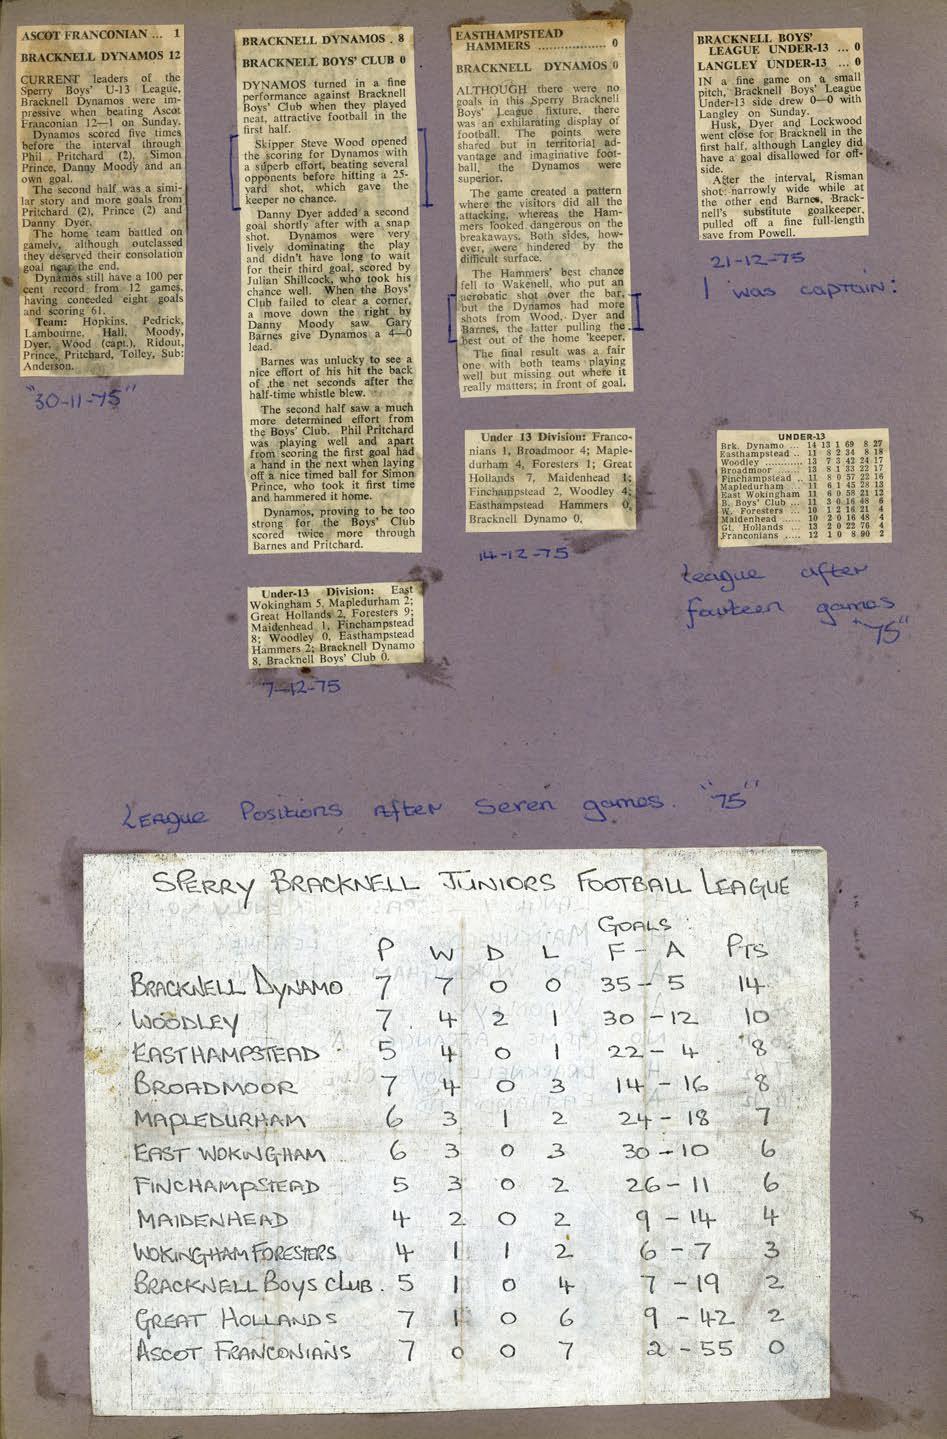 ASCOT FRANCONIAN ... 1
BRACKNELL DYNAMOS 12
CURRENT leaders of the
Sperry Boys' U-13 League,
Bracknell Dynamos were im-
pressive when beating Ascot
Franconian 12—1 on Sunday.
Dynamos scored five times
before the interval through
Phil Pritchard (2), Simon
Prince, Danny Moody and an
own goal.
The second half was a simi-
lar story and more goals from
Pritchard (2), Prince (2) and
Danny Dyer.
The home team battled on
gamely, although outclassed
they deserved their consolation
goal near the end.
Dynamos still have a 100 per
cent record from 12 games,
having conceded eight goals
and scoring 61.
Team: Hopkins, Pedrick,
Lambourne, Hall, Moody,
Dyer, Wood (capt.), Ridout,
Prince, Pritchard, Tolley, Sub:
Anderson.
"30-11-75"
BRACKNELL DYNAMOS . 8
BRACKNELL BOYS' CLUB 0
DYNAMOS turned in a fine
performance against Bracknell
Boys' Club when they played
neat, attractive football in the
first half.
Skipper Steve Wood opened
the scoring for Dynamos with
a superb effort, beating several
opponents before hitting a 25-
yard shot, which gave the
keeper no chance.
Danny Dyer added a second
goal shortly after with a snap
shot. Dynamos were very
lively dominating the play
and didn't have long to wait
for their third goal, scored by
Julian Shillcock, who took his
chance well. When the Boys'
Club failed to clear a corner,
a move down the right by
Danny Moody saw Gary
Barnes give Dynamos a 4—0
lead.
Barnes was unlucky to see a
nice effort of his hit the back
of the net seconds after the
half-time whistle blew.
The second half saw a much
more determined effort from
the Boys' Club. Phil Pritchard
was playing well and apart
from scoring the first goal had
a hand in the next when laying
off a nice timed ball for Simon
Prince, who took it first time
and hammered it home.
Dynamos, proving to be too
strong for the Boys' Club
scored twice more through
Barnes and Pritchard.
Under-13 Division: East
Wokingham 5, Mapledurham 2;
Great Hollands 2, Foresters 9;
Maidenhead 1, Finchampstead
8; Woodley 0, Easthampstead
Hammers 2; Bracknell Dynamo
8, Bracknell Boys' Club 0.
7-12-75
EASTHAMPSTEAD
HAMMERS .................. 0
BRACKNELL DYNAMOS 0
ALTHOUGH there were no
goals in this Sperry Bracknell
Boys' League fixture, there
was an exhilarating display of
football. The points were
shared but in territorial ad-
vantage and imaginative foot-
ball, the Dynamos were
superior.
The game created a pattern
where the visitors did all the
attacking, whereas the Ham-
mers looked dangerous on the
breakaways. Both sides, how-
ever, were hindered by the
difficult surface.
The Hammers' best chance
fell to Wakenell, who put an
acrobatic shot over the bar,
but the Dynamos had more
shots from Wood, Dyer and
Barnes, the latter pulling the
best out of the home 'keeper.
The final result was a fair
one with both teams playing
well but missing out where it
really matters; in front of goal.
Under 13 Division: Franco-
nians 1, Broadmoor 4; Maple-
durham 4, Foresters 1; Great
Hollands 7, Maidenhead 1;
Finchampstead 2, Woodley 4;
Easthampstead Hammers 0,
Bracknell Dynamo 0,
14-12-75
BRACKNELL BOYS'
LEAGUE UNDER-13 ... 0
LANGLEY UNDER-13 ... 0
IN a fine game on a small
pitch, Bracknell Boys' League
Under-13 side drew 0—0 with
Langley on Sunday.
Husk, Dyer and Lockwood
went close for Bracknell in the
first half, although Langley did
have a goal disallowed for off-
side.
After the interval, Risman
shot narrowly wide while at
the other end Barnes, Brack-
nell's substitute goalkeeper,
pulled off a fine full-length
save from Powell.
21-12-75
I was captain:
UNDER-13
Brk. Dynamo ... 14 13 1 69 8 27
Easthampstead .. 11 8 2 34 8 18
Woodley ............ 13 7 3 42 24 17
Broadmoor ........ 13 8 1 33 22 17
Finchampstead .. 11 8 0 57 22 16
Mapledurham ... 11 6 1 45 28 13
East Wokingham 11 6 0 58 21 12
B. Boys' Club ... 11 3 0 16 48 6
W. Foresters .... 10 1 2 16 21 4
Maidenhead ...... 10 2 0 16 48 4
Gt. Hollands ... 13 2 0 22 76 4
Franconians ..... 12 1 0 8 90 2
League after
fourteen games
"75"
League Positions After Seven games. "75"
SPERRY BRACKNELL JUNIORS FOOTBALL LEAGUE
GOALS
P W D L F - A PTS
BRACKNELL DYNAMO 7 7 0 0 35 - 5 14
WOODLEY 7 4 2 1 30 - 12 10
EASTHAMPSTEAD 5 4 0 1 22 - 4 8
BROADMOOR 7 4 0 3 14 - 16 8
MAPLEDURHAM 6 3 1 2 24 - 18 7
EAST WOKINGHAM 6 3 0 3 30 - 10 6
FINCHAMPSTEAD 5 3 0 2 26 - 11 6
MAIDENHEAD 4 2 0 2 9 - 14 4
WOKINGHAM FORESTERS 4 1 1 2 6 - 7 3
BRACKNELL BOYS CLUB. 5 1 0 4 7 - 19 2
GREAT HOLLANDS 7 1 0 6 9 - 42 2
ASCOT FRANCONIANS 7 0 0 7 2 - 55 0